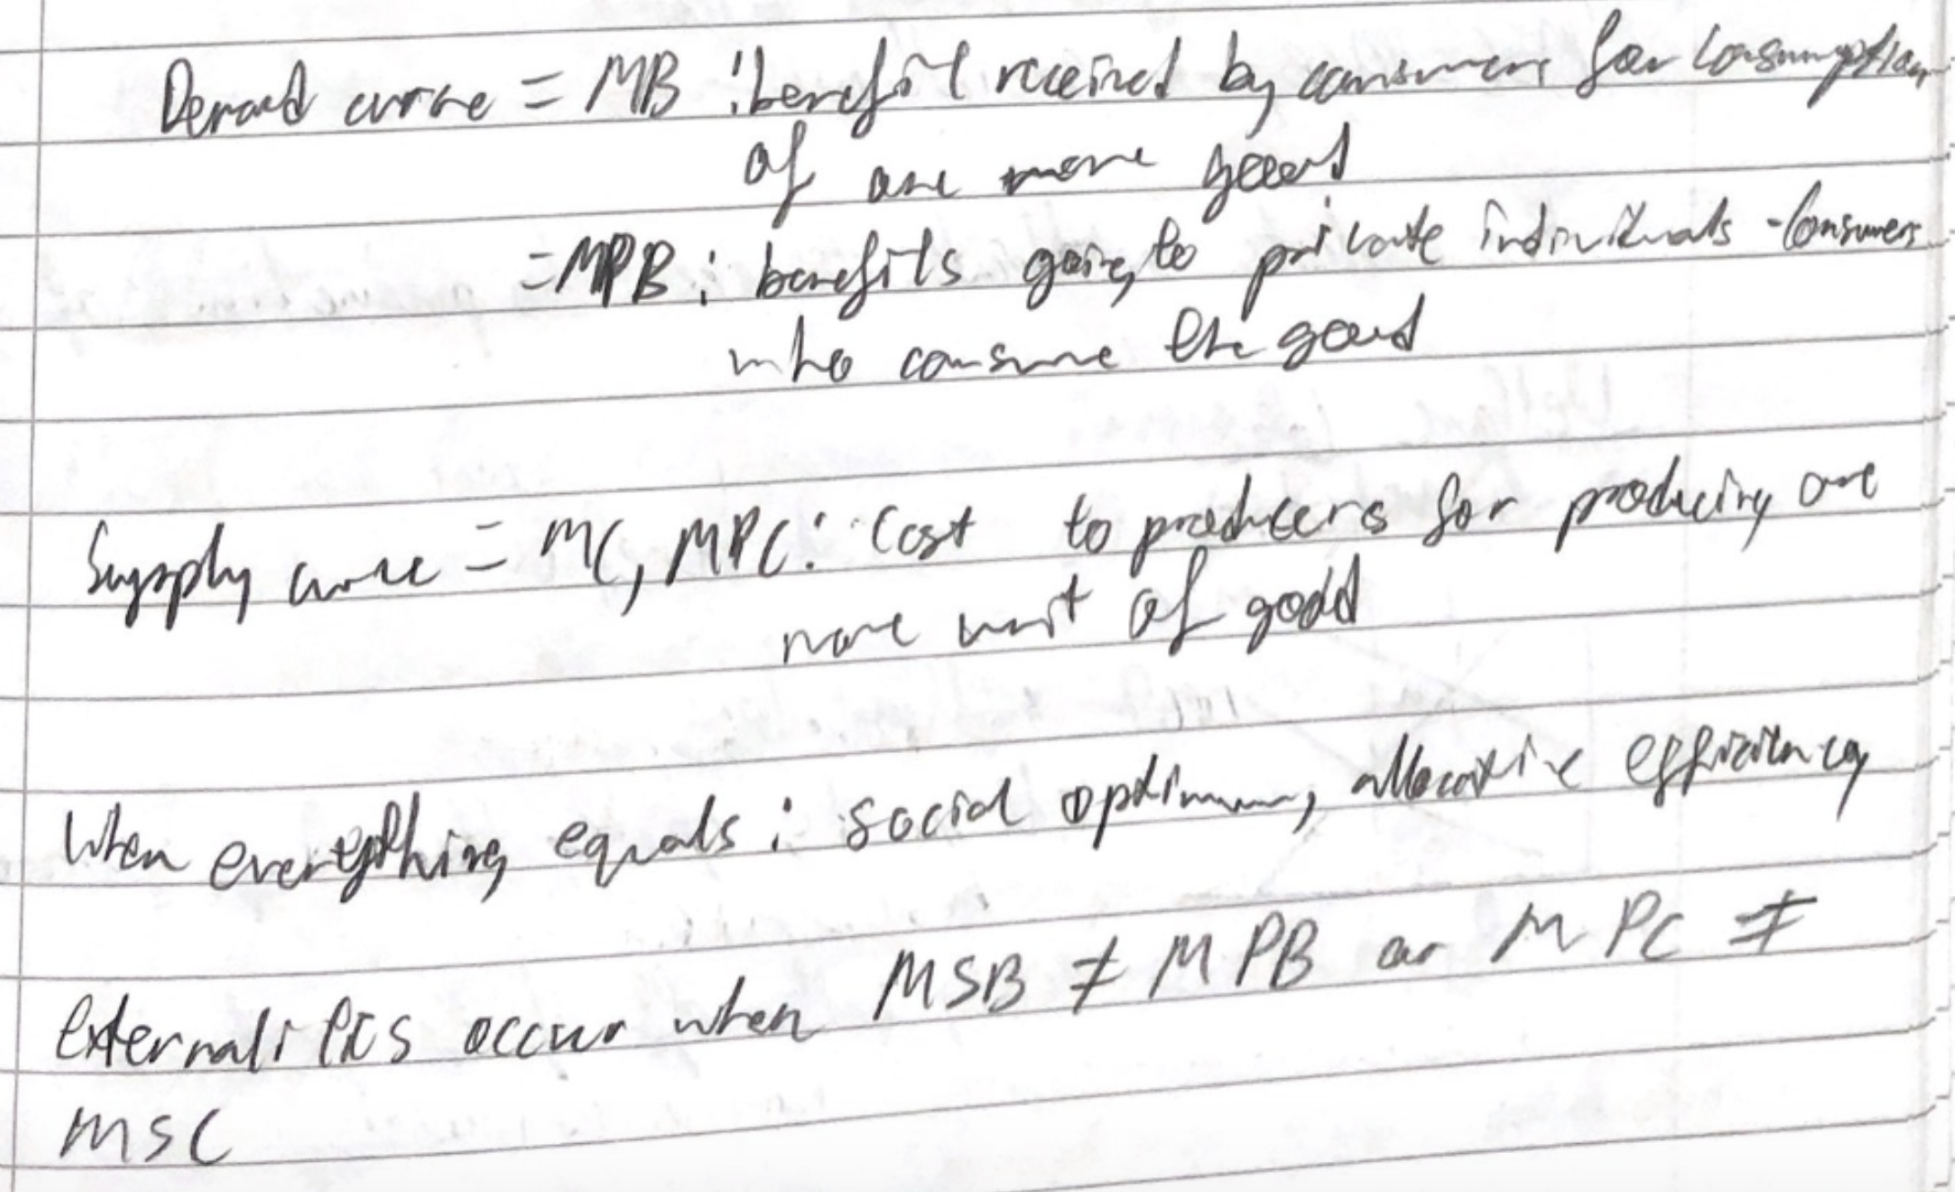 Demand curve = MB : benefit received by consumers for consumption
of one more good
= MPB : benefits going to private individuals - Consumers
who consume the good
Supply curve = MC, MPC : Cost to producers for producing one
more unit of good
When everything equals : social optimum, allocative efficiency
Externalities occur when MSB ≠ MPB or MPC ≠
MSC